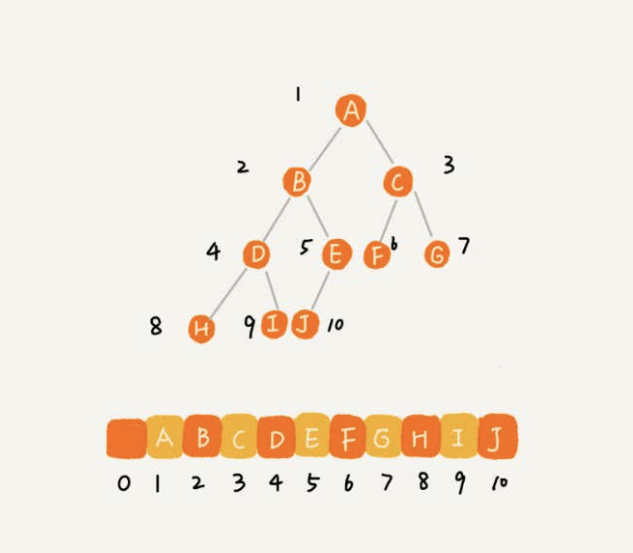 1 A
2 B C 3
4 D 5 E F 6 G 7
8 H 9 I J 10
A B C D E F G H I J
0 1 2 3 4 5 6 7 8 9 10